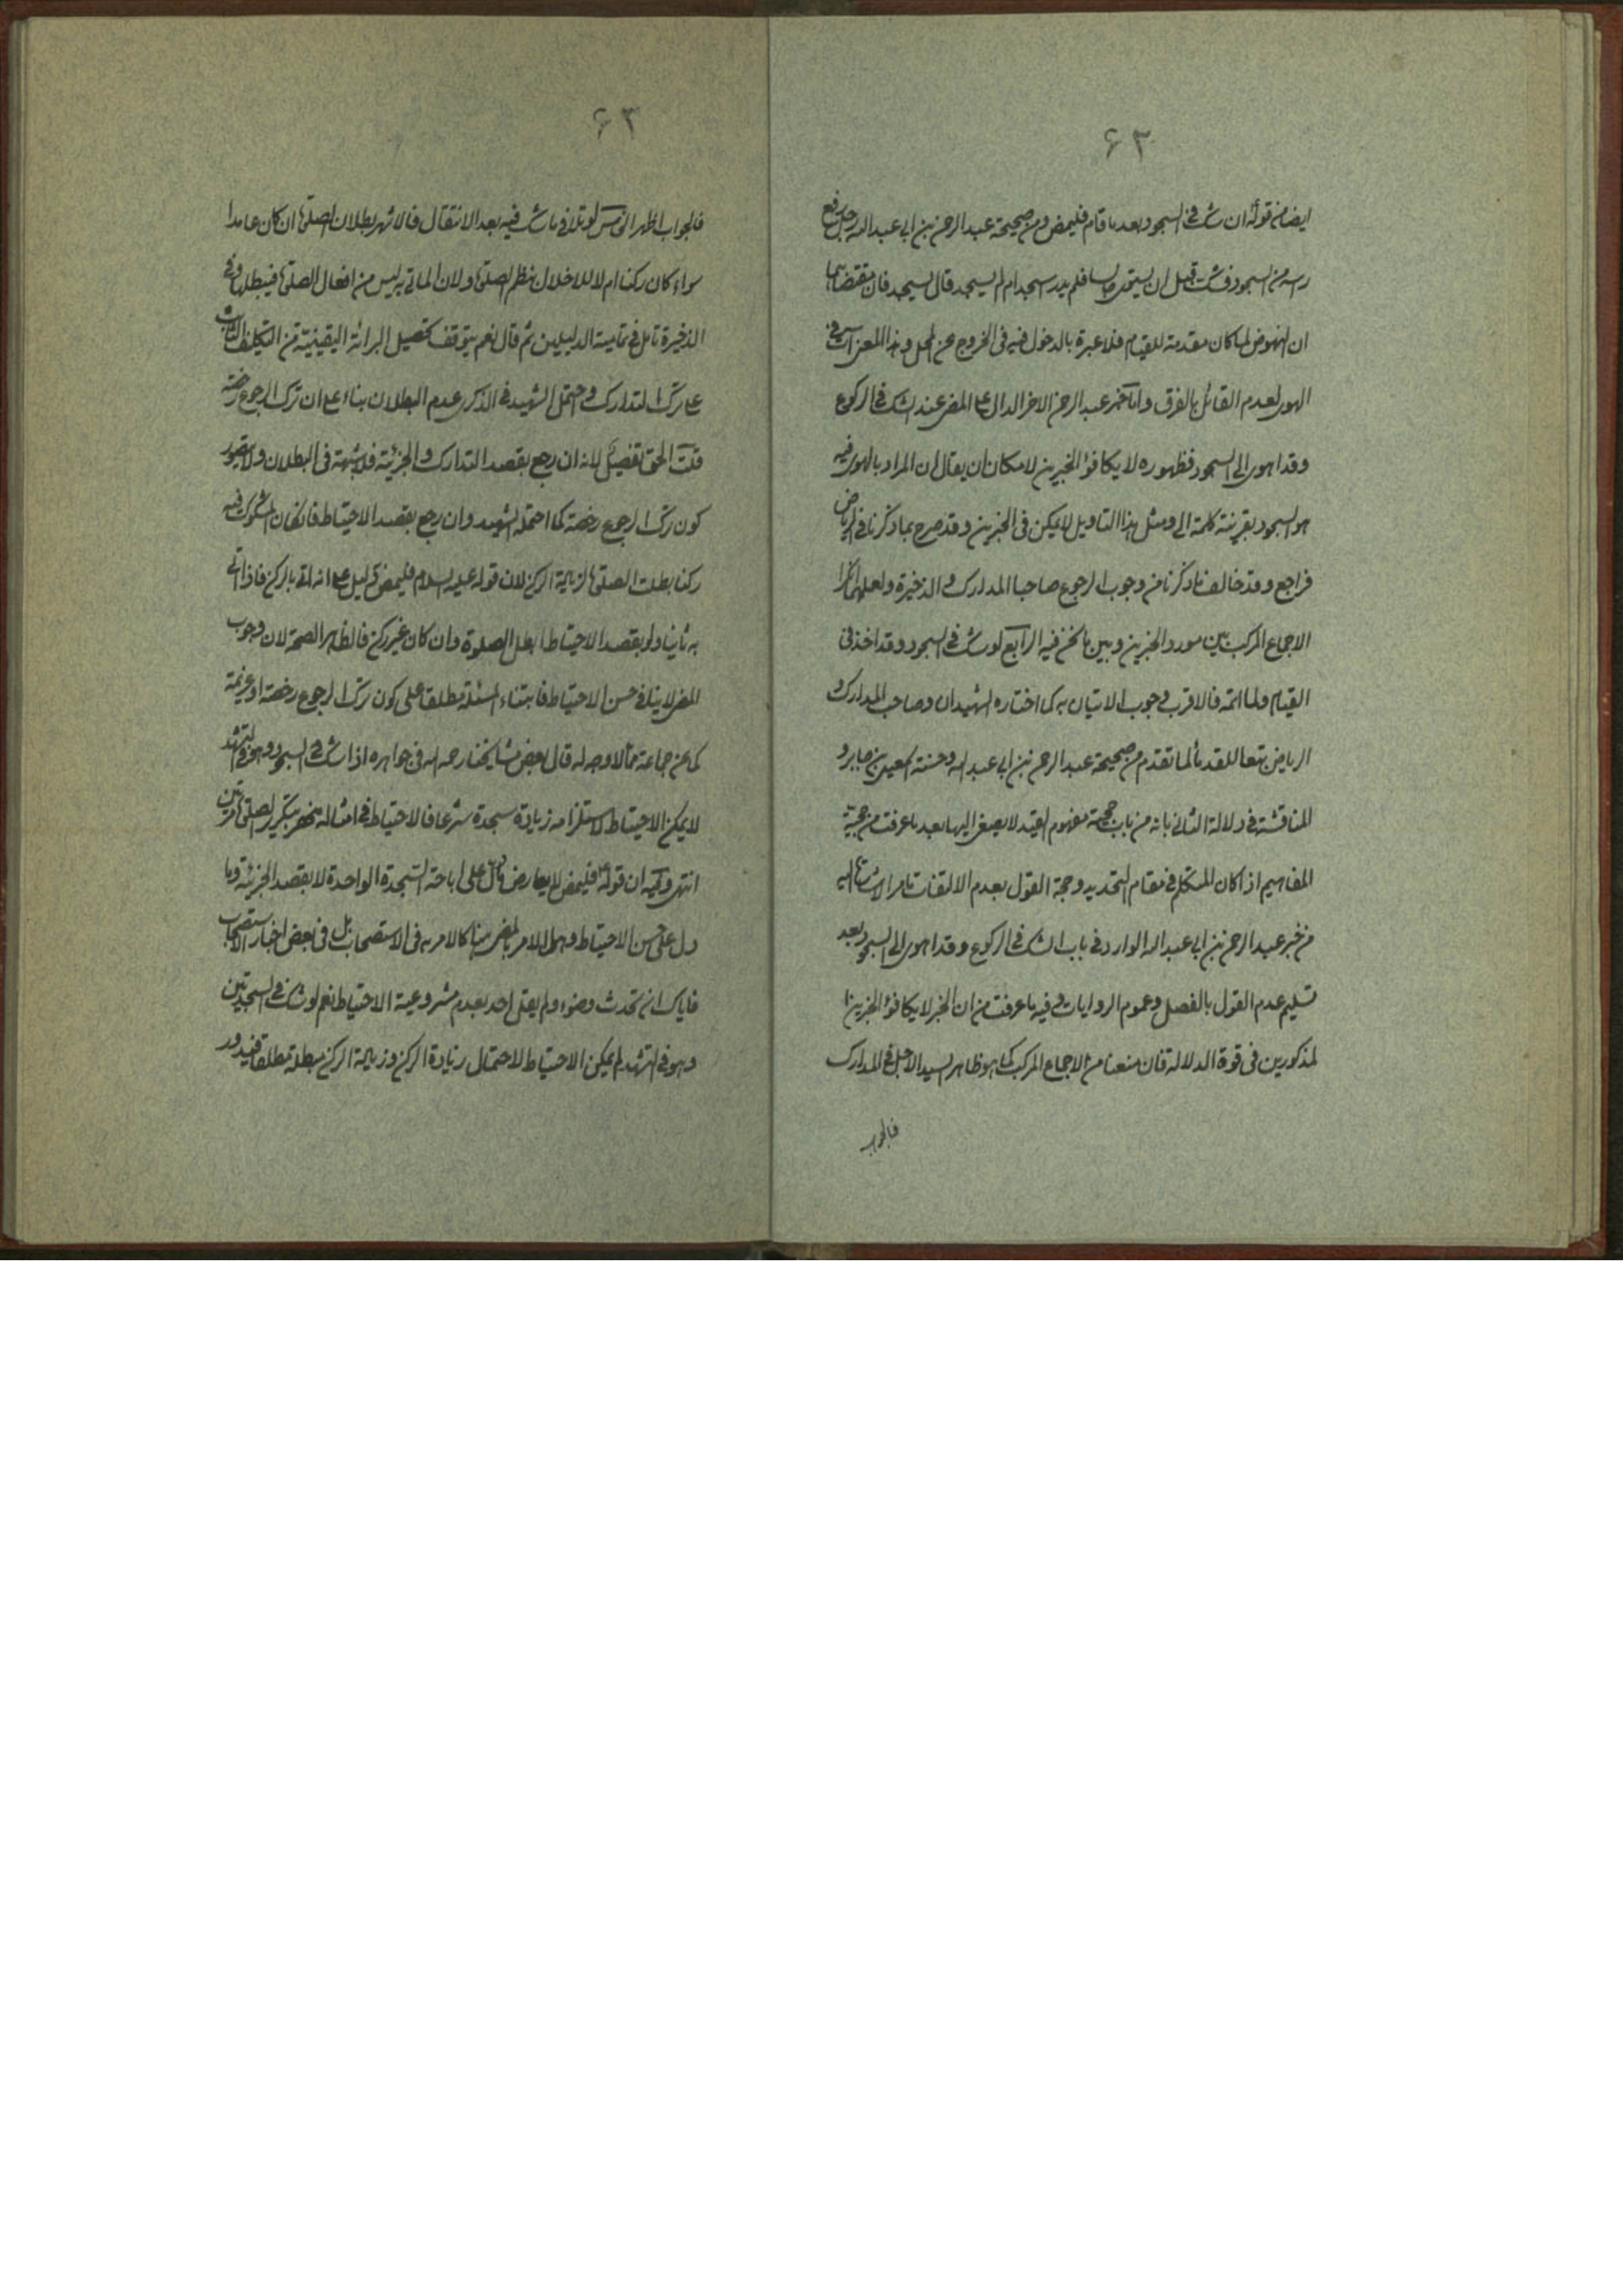 ۶۲
ايضا من قوله ان شك في السجود بعد ما قام فليمض ومن صحيحة عبد الرحمن بن ابي عبد الله رجل رفع
رأسه من السجود فشك قبل ان يستوى جالسا فلم يدر اسجد ام لم يسجد قال يسجد فان مقتضاهما
ان النهوض لما كان مقدمة للقيام فلا عبرة بالدخول فيه في الخروج عن المحل وهذا المعنى آت في
الهوى لعدم القائل بالفرق واما خبر عبد الرحمن الاخر الدال على المضى عند الشك في الركوع
وقد اهوى الى السجود فظهوره لا يكافؤ الخبرين لامكان ان يقال ان المراد بالهوى فيه
هو السجود بقرينة كلمة الى ومثل هذا التاويل لا يمكن في الخبرين وقد صرح بما ذكرنا في الرياض
فراجع وقد خالف ما ذكرنا من وجوب الرجوع صاحبا المدارك والذخيرة ولعلهما انكرا
الاجماع المركب بين مورد الخبرين وبين ما نحن فيه الرابع لو شك في السجود وقد اخذ في
القيام ولما اتمه فالاقرب وجوب الاتيان به كما اختاره الشهيدان وصاحب المدارك و
الرياض تبعا للقدماء لما تقدم من صحيحة عبد الرحمن بن ابي عبد الله وحسنة اسمعيل بن جابر و
المناقشة في دلالة الثاني بانه من باب حجية مفهوم القيد لا يصغى اليها بعد ما عرفت من حجية
المفاهيم اذا كان المتكلم في مقام التحديد وحجة القول بعدم الالتفات ما مر الاشارة اليه
من خبر عبد الرحمن بن ابي عبد الله الوارد في باب الشك في الركوع وقد اهوى الى السجود بعد
تسليم عدم القول بالفصل وعموم الروايات وفيه ما عرفت من ان الخبر لا يكافؤ الخبرين
المذكورين في قوة الدلالة فان منعنا من الاجماع المركب كما هو ظاهر السيد الاجل في المدارك
فالجواب
۶۳
فالجواب اظهر الخامس لو تلافى ما شك فيه بعد الانتقال فالاشهر بطلان الصلوة ان كان عامدا
سواء كان ركنا ام لا للاخلال بنظم الصلوة ولان الماتي به ليس من افعال الصلوة فيبطلها وفي
الذخيرة تامل في تمامية الدليلين ثم قال نعم يتوقف تحصيل البرائة اليقينية من التكليف الثابت
على ترك التدارك واحتمل الشهيد في الذكرى عدم البطلان بناء على ان ترك الرجوع رخصة
قلت الحق تفصيل لانه ان رجع بقصد التدارك والجزئية فلا شبهة في البطلان ولا يتصور
كون ترك الرجوع رخصة كما احتمله الشهيد وان رجع بقصد الاحتياط فان كان المشكوك فيه
ركنا بطلت الصلوة لزيادة الركن لان قوله عليه السلام فليمض دليل على انه اتى بالركن فاذا اتى
به ثانيا ولو بقصد الاحتياط ابطل الصلوة وان كان غير ركن فالظاهر الصحة لان وجوب
المضى لا ينافى حسن الاحتياط فابتناء المسئلة مطلقا على كون ترك الرجوع رخصة او عزيمة
كما عن جماعة مما لا وجه له قال بعض مشايخنا رحمه الله في جواهره اذا شك في السجود وهو في التشهد
لا يمكن الاحتياط لاستلزامه زيادة سجدة شرعا فالاحتياط في امثاله منحصر بتكرير الصلوة مرتين
انتهى وفيه ان قوله فليمض لا يعارض ما دل على اباحة السجدة الواحدة لا بقصد الجزئية وما
دل على حسن الاحتياط وهل الامر بالمضى هنا الا كالامر به في الاستصحاب بل في بعض اخبار الاستصحاب
فاياك ان تحدث وضوء ولم يقل احد بعدم مشروعية الاحتياط نعم لو شك في السجدتين
وهو في التشهد لم يمكن الاحتياط لاحتمال زيادة الركن وزيادة الركن مبطلة مطلقا فيدور